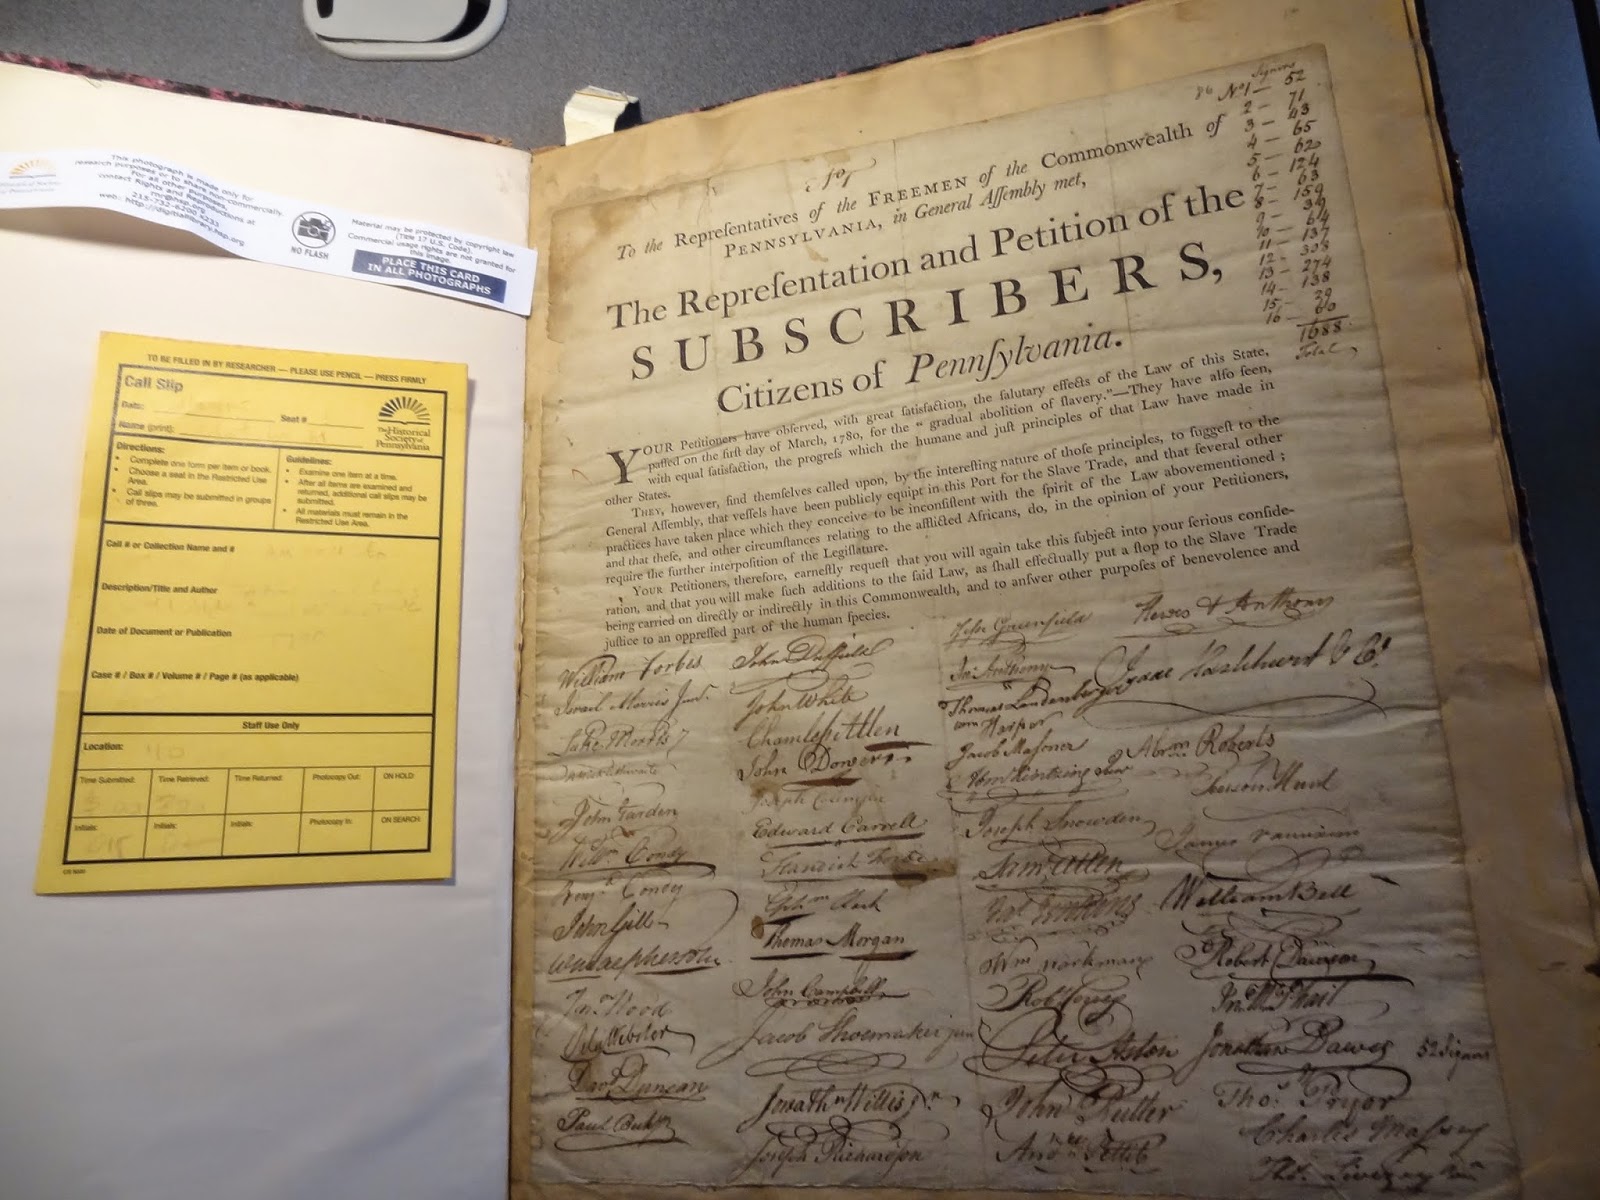 This photograph is made only for
research purposes or to share non-commercially.
For all other purposes,
contact Rights and Reproductions at
rnr@hsp.org
215-732-6200 x233
web: http://digitallibrary.hsp.org
NO FLASH
Material may be protected by copyright law
(Title 17 U.S. Code).
Commercial usage rights are not granted for
this image.
PLACE THIS CARD
IN ALL PHOTOGRAPHS
TO BE FILLED IN BY RESEARCHER — PLEASE USE PENCIL — PRESS FIRMLY
Call Slip
Date:
Seat #
Name (print):
The Historical
Society of
Pennsylvania
Directions:
• Complete one form per item or book.
• Choose a seat in the Restricted Use
Area.
• Call slips may be submitted in groups
of three.
Guidelines:
• Examine one item at a time.
• After all items are examined and
returned, additional call slips may be
submitted.
• All materials must remain in the
Restricted Use Area.
Call # or Collection Name and #
Description/Title and Author
Date of Document or Publication
Case # / Box # / Volume # / Page # (as applicable)
Staff Use Only
Location:
Time Submitted:
Time Retrieved:
Time Returned:
Photocopy Out:
ON HOLD
Initials:
Initials:
Initials:
Photocopy In:
ON SEARCH:
Signers
No 1 — 52
2 — 71
3 — 43
4 — 65
5 — 62
6 — 124
7 — 63
8 — 159
9 — 39
10 — 64
11 — 137
12 — 308
13 — 274
14 — 138
15 — 29
16 — 60
1688
Total
To the Repreſentatives of the FREEMEN of the Commonwealth of
PENNSYLVANIA, in General Aſſembly met,
The Repreſentation and Petition of the
SUBSCRIBERS,
Citizens of Pennſylvania.
YOUR Petitioners have obſerved, with great ſatisfaction, the ſalutary effects of the Law of this State,
paſſed on the firſt day of March, 1780, for the “ gradual abolition of ſlavery.”—They have alſo ſeen,
with equal ſatisfaction, the progreſs which the humane and juſt principles of that Law have made in
other States.
THEY, however, find themſelves called upon, by the intereſting nature of thoſe principles, to ſuggeſt to the
General Aſſembly, that veſſels have been publicly equipt in this Port for the Slave Trade, and that ſeveral other
practices have taken place which they conceive to be inconſiſtent with the ſpirit of the Law abovementioned ;
and that theſe, and other circumſtances relating to the afflicted Africans, do, in the opinion of your Petitioners,
require the further interpoſition of the Legiſlature.
YOUR Petitioners, therefore, earneſtly requeſt that you will again take this ſubject into your ſerious conſide-
ration, and that you will make ſuch additions to the ſaid Law, as ſhall effectually put a ſtop to the Slave Trade
being carried on directly or indirectly in this Commonwealth, and to anſwer other purpoſes of benevolence and
juſtice to an oppreſſed part of the human ſpecies.
William Forbes
Israel Morris Junr.
Luke Morris
John Garden
Willm. Coney
Benj. Coney
John Gill
Wm Macpherson
Pela Webster
Davd. Duncan
John Duffield
John White
John Dowers
Edward Carrell
Ephm Clark
Thomas Morgan
John Campbell
Jacob Shoemaker jun
Jonathn Willis jr
Joseph Richardson
John Greenfield
Jos: Anthony
Jacob Masoner
Joseph Snowden
Sam Allen
Wm Workman
Peter Aston
John Rutter
Andw Pettit
Hewes & Anthony
Isaac Hazlehurst & Co.
Abrm Roberts
William Bell
Robert Dawson
Jonathan Dawes
52 Signers
Thos. Pryor
Charles Massey